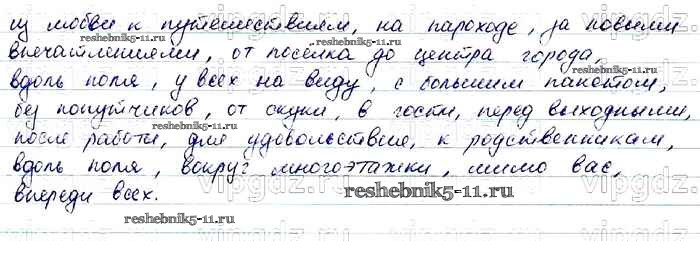 из любви к путешествиям, на пароходе, за новыми
впечатлениями, от посёлка до центра города,
вдоль поля, у всех на виду, с большим пакетом,
без попутчиков, от скуки, в гости, перед выходными,
после работы, для удовольствия, к родственникам,
вдоль поля, вокруг многоэтажки, мимо вас,
впереди всех.
reshebnik5-11.ru
reshebnik5-11.ru
reshebnik5-11.ru
reshebnik5-11.ru
reshebnik5-11.ru
vipgdz.ru